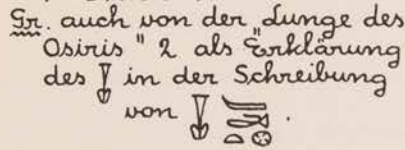 Gr. auch von der Lunge des
Osiris " 2 als Erklärung
des in der Schreibung
von .